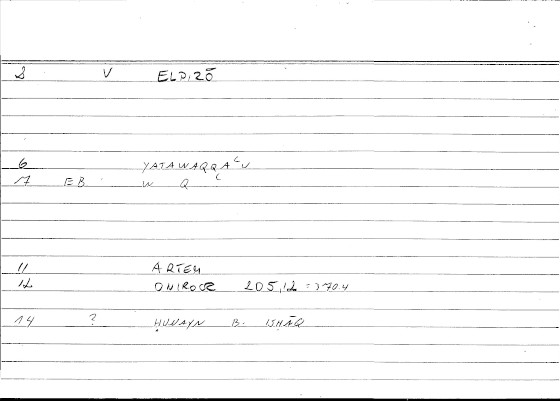 8 V ELPIZŌ
6 YATAWAQQAʿU
7 EB W Q ʿ
11 ARTEM
12 ONIROCR 205,12 =
14 ? ḤUNAYN B. ISḤĀQ